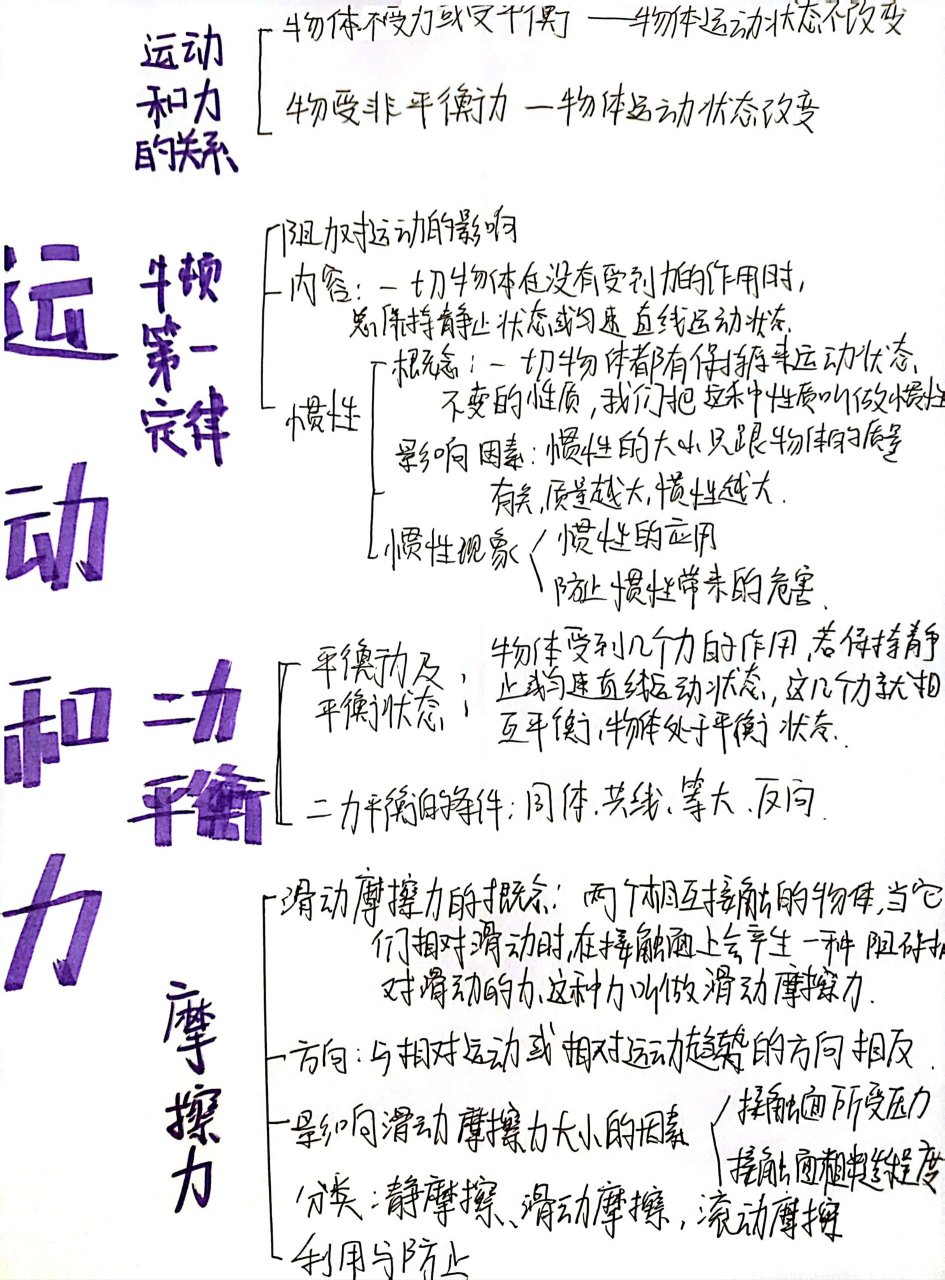 运动和力
运动
和力
的关系
物体不受力或受平衡 — 物体运动状态不改变
物受非平衡力 — 物体运动状态改变
牛顿
第一
定律
阻力对运动的影响
内容：一切物体在没有受到力的作用时，
总保持静止状态或匀速直线运动状态.
惯性
概念：一切物体都有保持原来运动状态
不变的性质，我们把这种性质叫做惯性
影响因素：惯性的大小只跟物体的质量
有关，质量越大，惯性越大.
惯性现象
惯性的应用
防止惯性带来的危害.
二力
平衡
平衡力及
平衡状态：
物体受到几个力的作用，若保持静
止或匀速直线运动状态，这几个力就相
互平衡，物体处于平衡状态.
二力平衡的条件：同体、共线、等大、反向.
摩
擦
力
滑动摩擦力的概念：两个相互接触的物体，当它
们相对滑动时，在接触面上会产生一种阻碍相
对滑动的力，这种力叫做滑动摩擦力.
方向：与相对运动或相对运动趋势的方向相反.
影响滑动摩擦力大小的因素
接触面所受压力
接触面粗糙程度
分类：静摩擦、滑动摩擦，滚动摩擦
利用与防止